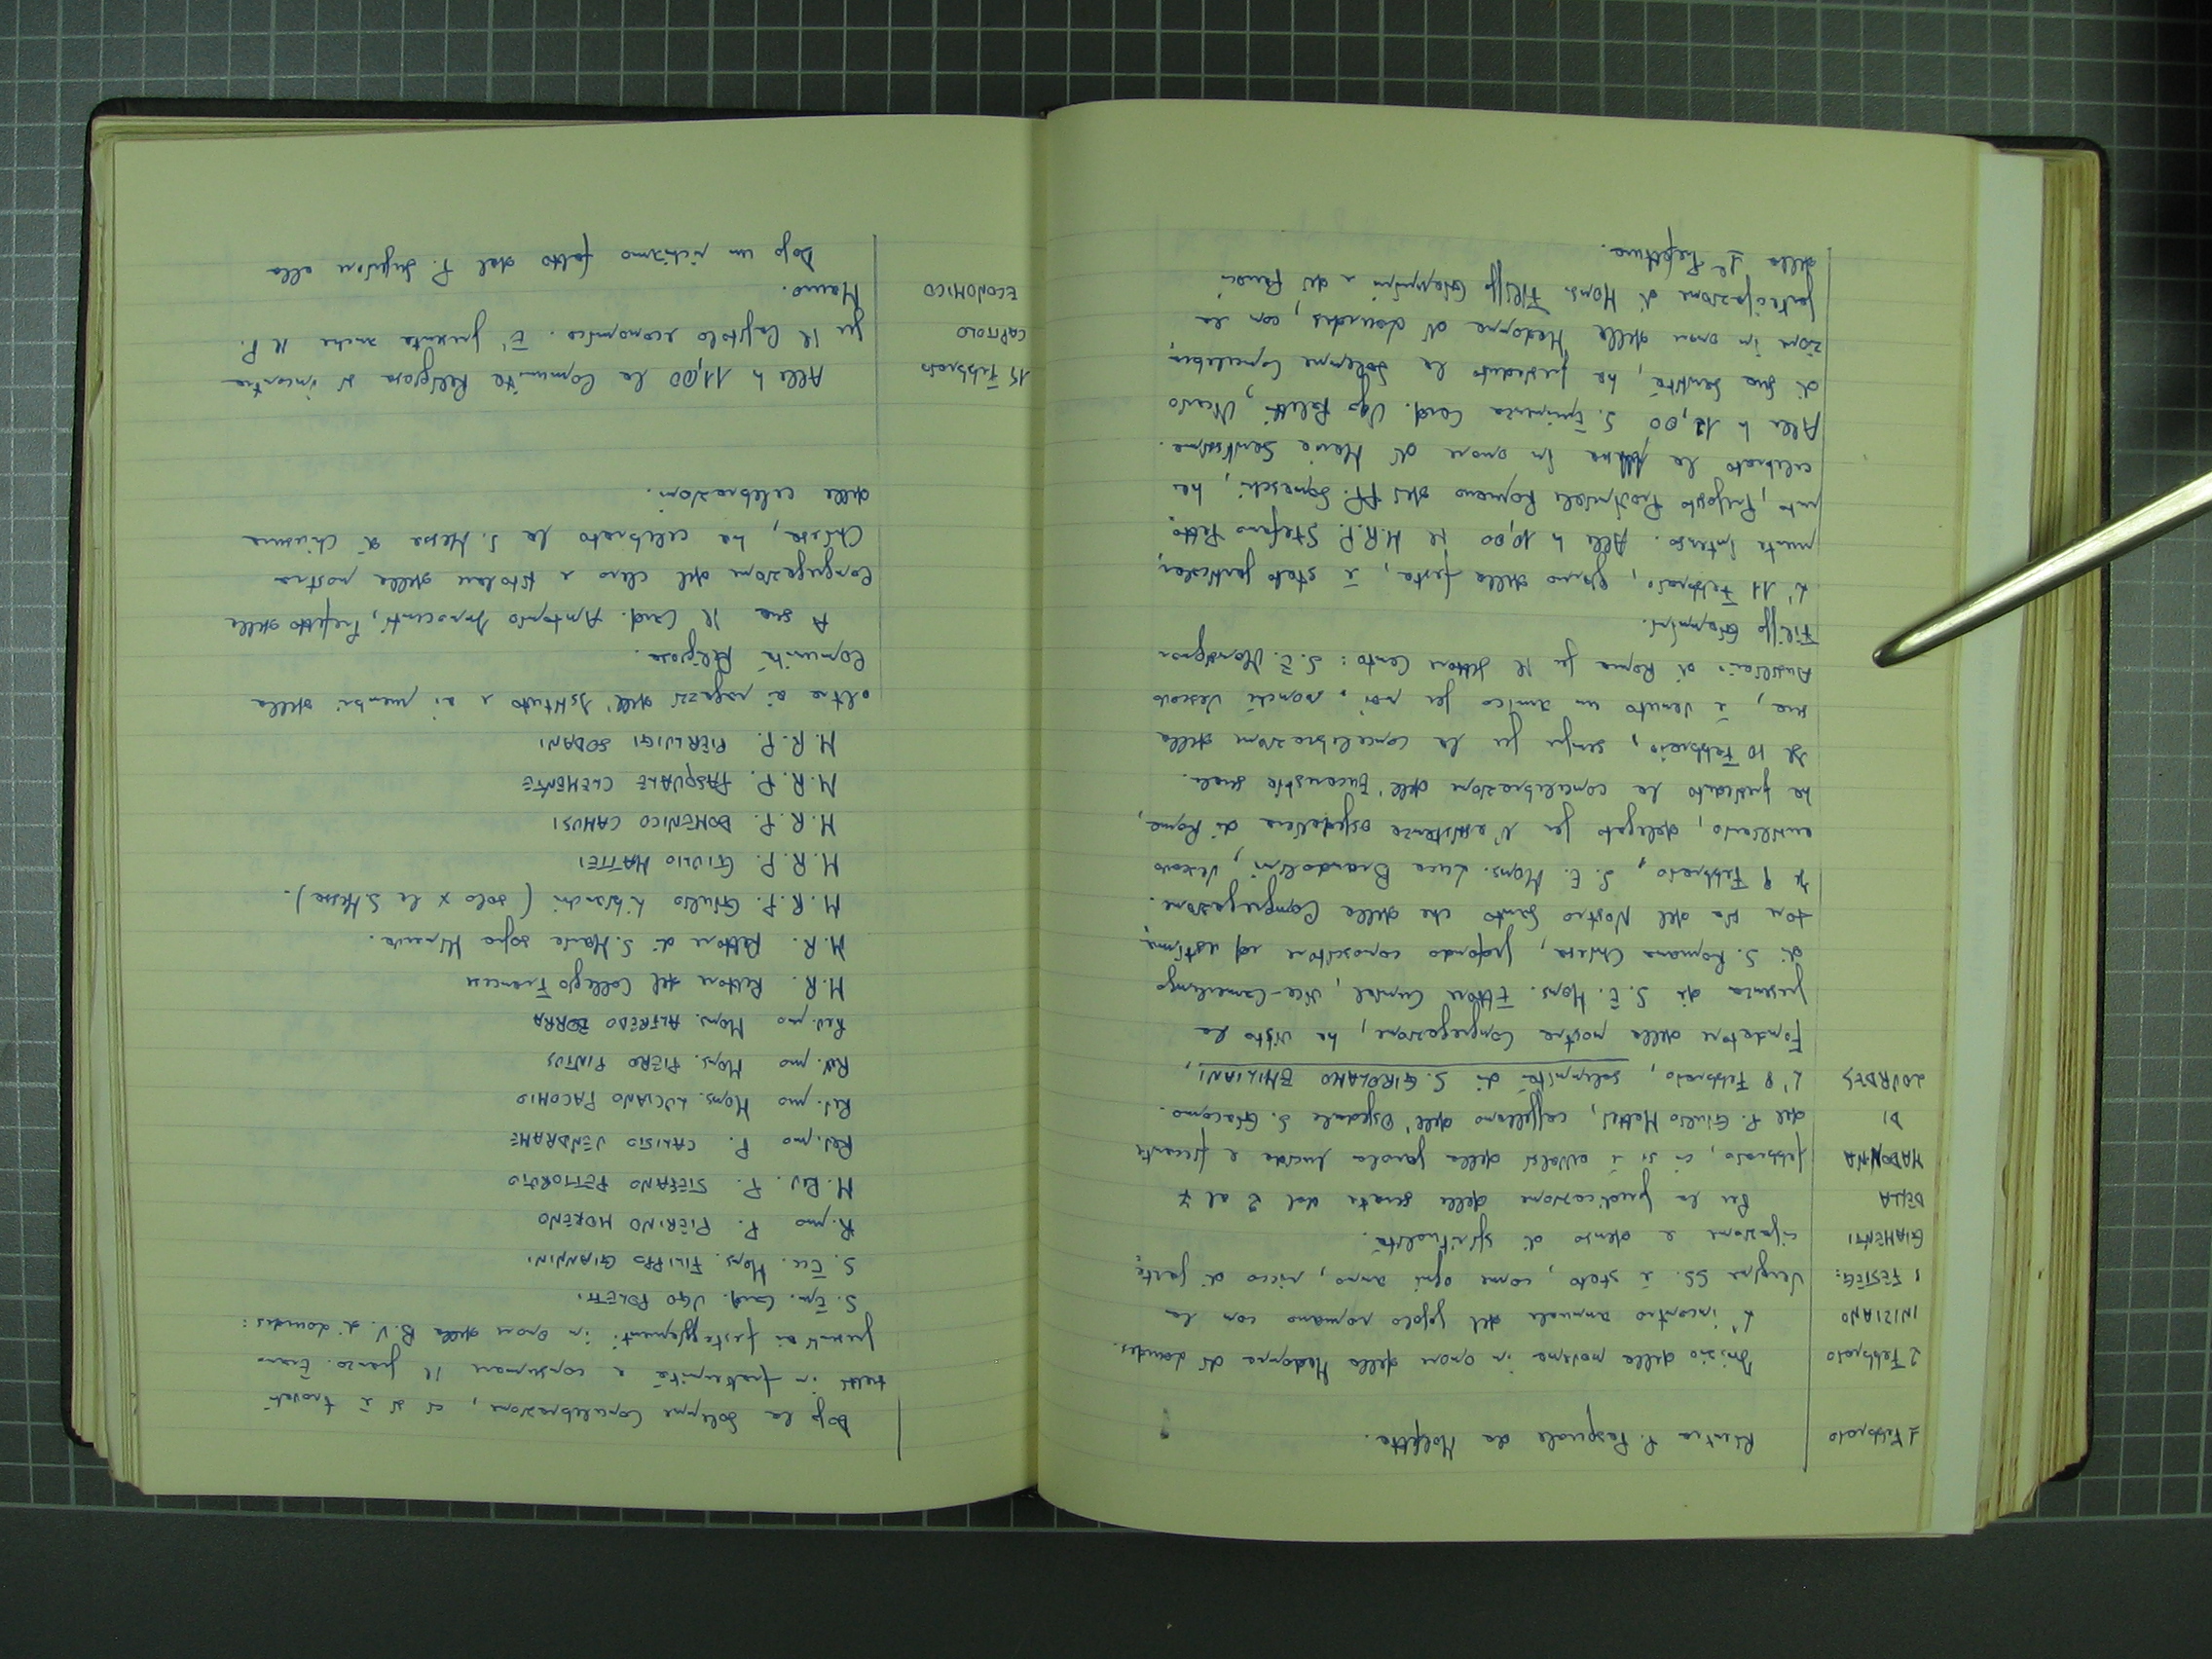 1 Febbraio Rientra P. Pasquale da Molfetta.
2 Febbraio Inizio della novena in onore della Madonna di Lourdes.
INIZIANO L'incontro annuale del popolo romano con la
I FESTEG= Vergine SS. è stato, come ogni anno, ricco di parte=
GIAMENTI cipazione e denso di spiritualità.
DELLA Per la predicazione delle serate dal 2 al 7
MADONNA febbraio, ci si è avvalsi della parola lucida e
DI del P. Giulio Mattei, cappellano dell'Ospedale S. Giacomo.
LOURDES L'8 Febbraio, solennità di S. GIROLAMO EMILIANI,
Fondatore della nostra Congregazione, ha visto la
presenza di S. E. Mons. Ettore Cunial, vice-Camerlengo
di S. Romana Chiesa, profondo conoscitore ed estima=
tore sia del Nostro Santo che della Congregazione.
Il 9 Febbraio, S. E. Mons. Luca Brandolini, Vescovo
ausiliario, delegato per l'assistenza ospedaliera di Roma,
ha presieduto la concelebrazione dell'Eucaristia serale.
Il 10 Febbraio, sempre per la concelebrazione della
sera, è venuto un amico per noi, nonché Vescovo
Ausiliario di Roma per il Settore Centro: S. E. Monsignor
Filippo Giannini.
L'11 Febbraio, giorno della festa, è stato particolar=
mente intenso. Alle h 10,00 il M.R.P. Stefano Petto=
ruto, Preposto Provinciale Romano dei PP. Somaschi, ha
celebrato la Messa in onore di Maria Santissima.
Alle h 12,00 S. Eminenza Card. Ugo Poletti, Vicario
di Sua Santità, ha presieduto la Solenne Concelebra=
zione in onore della Madonna di Lourdes, con la
partecipazione di Mons. Filippo Giannini e dei Parroci
della 1ª Prefettura.
Dopo la Solenne Concelebrazione, ci si è trovati
tutti in fraternità a consumare il pranzo. Erano
presenti ai festeggiamenti in onore della B. V. di Lourdes:
S. Em. Card. UGO POLETTI
S. Ecc. Mons. FILIPPO GIANNINI
R.mo P. PIERINO MORENO
M. Rev. P. STEFANO PETTORUTO
Rev.mo P. CALISTO VENDRAME
Rev.mo Mons. LUCIANO PACOMIO
Rev.mo Mons. PIERO PINTUS
Rev.mo Mons. ALFREDO
M. R. Rettore del Collegio Francese
M. R. Rettore di S. Maria sopra Minerva.
M. R. P. Giulio Librandi (solo x la S. Messa).
M. R. P. GIULIO MATTEI
M. R. P. DOMENICO CAMUSI
M. R. P. PASQUALE CLEMENTE
M. R. P. PIERLUIGI SODANI
oltre ai ragazzi dell'Istituto e ai membri della
Comunità Religiosa.
A sera il Card. Antonio Innocenti, Prefetto della
Congregazione del clero e titolare della nostra
Chiesa, ha celebrato la S. Messa di chiusura
delle celebrazioni.
15 Febbraio Alle h 11,00 la Comunità Religiosa si incontra
CAPITOLO per il Capitolo economico. E' presente anche il P.
ECONOMICO Mauro.
Dopo un richiamo fatto dal P. Superiore alla